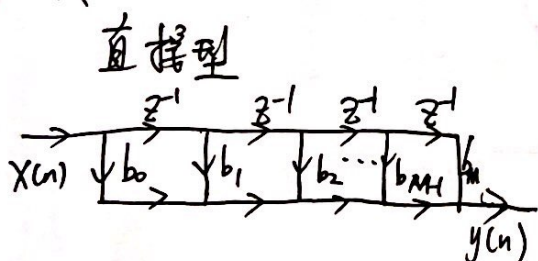 直接型
z⁻¹ z⁻¹ z⁻¹ z⁻¹
x(n) b₀ b₁ b₂ ... b_{M-1} b_M
y(n)